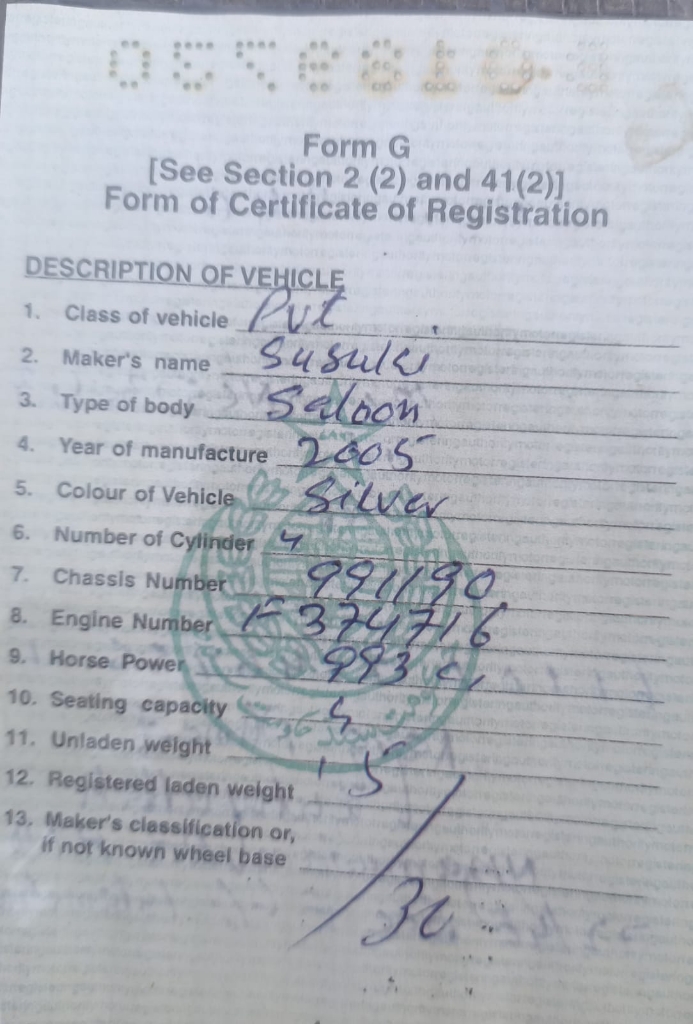 Form G
[See Section 2 (2) and 41(2)]
Form of Certificate of Registration
DESCRIPTION OF VEHICLE
1. Class of vehicle Pvt
2. Maker's name Susuki
3. Type of body Saloon
4. Year of manufacture 2005
5. Colour of Vehicle Silver
6. Number of Cylinder 4
7. Chassis Number 991190
8. Engine Number F374716
9. Horse Power 993 c,
10. Seating capacity
11. Unladen weight
12. Registered laden weight
13. Maker's classification or,
if not known wheel base